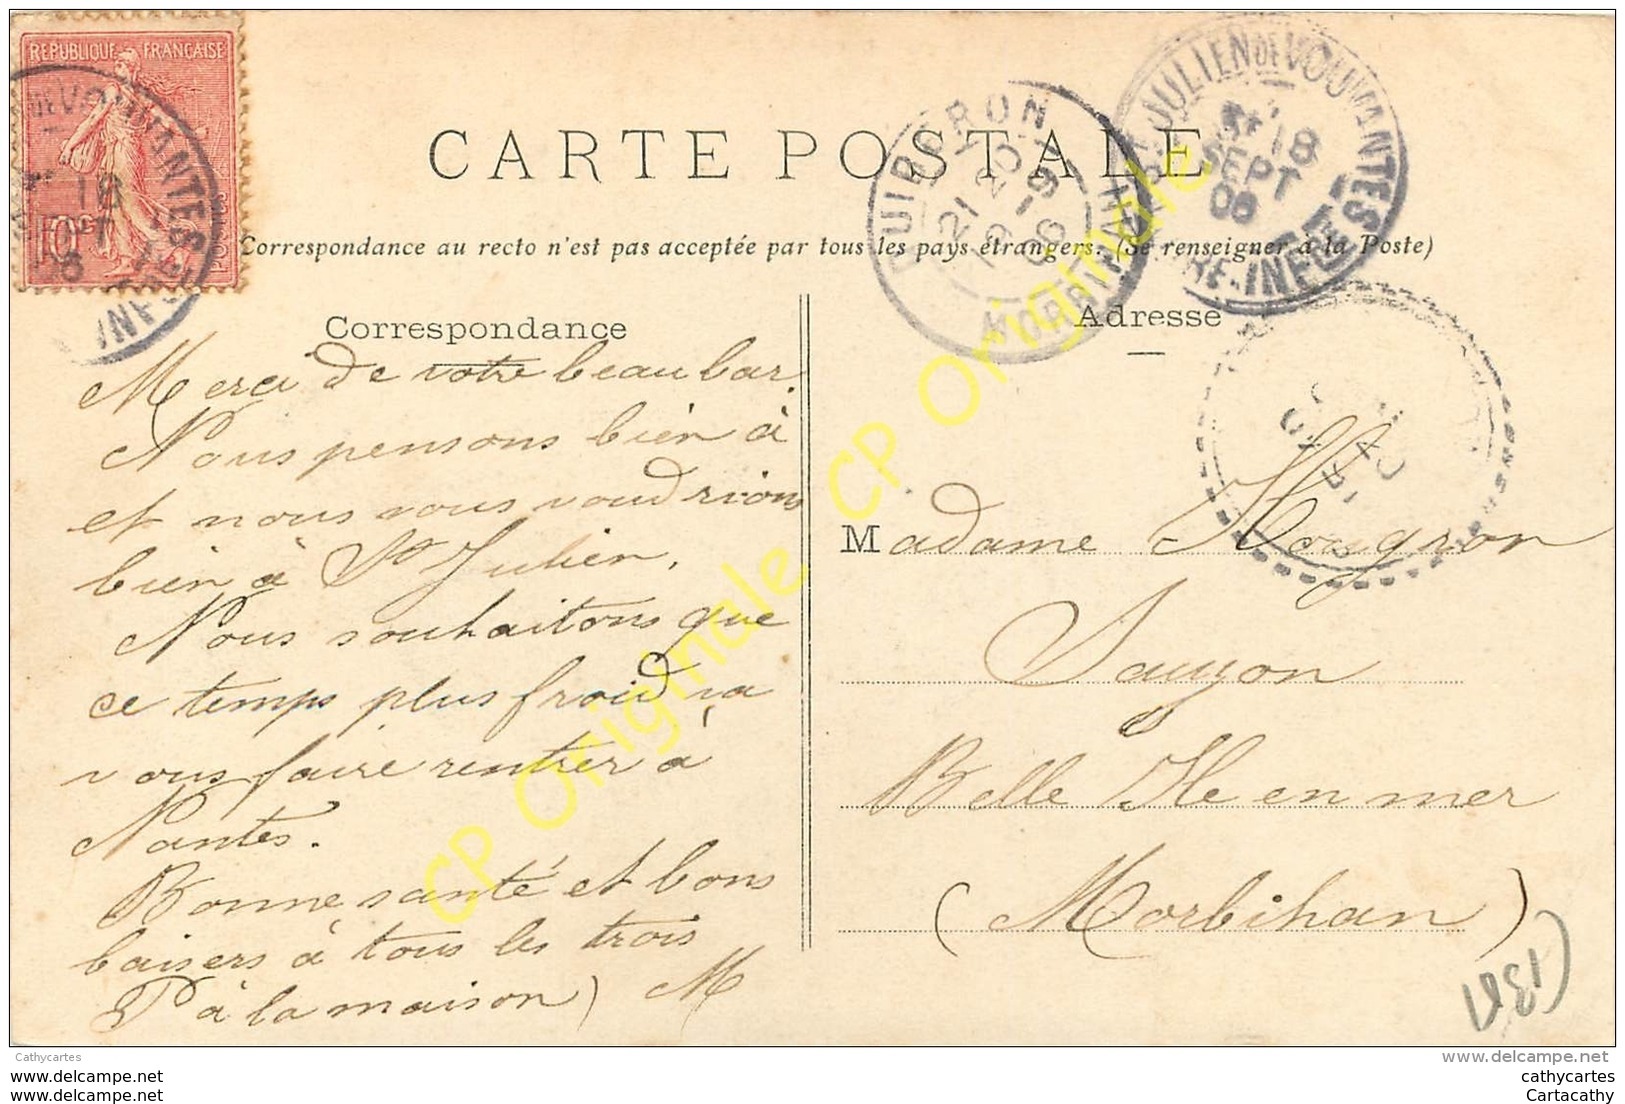 REPUBLIQUE FRANÇAISE
10c
POSTES
DE VOUVANTES
18
06
QUIBERON
21 20
19 - 9
06
MORBIHAN
ST JULIEN DE VOUVANTES
18
SEPT
06
LOIRE-INFRE
CARTE POSTALE
Correspondance au recto n'est pas acceptée par tous les pays étrangers. (Se renseigner à la Poste)
Correspondance
Adresse
Merci de votre beau bar.
Nous pensons bien à
et nous vous voudrions
bien à St Julien.
Nous souhaitons que
ce temps plus froid va
vous faire rentrer à
Nantes.
Bonne santé et bons
baisers à tous les trois
(P à la maison) M
Madame Hougron
Sauzon
Belle Ile en mer
(Morbihan)
CP Originale
CP Originale
Cathycartes
www.delcampe.net
www.delcampe.com
www.delcampe.fr
cathycartes
Cartacathy